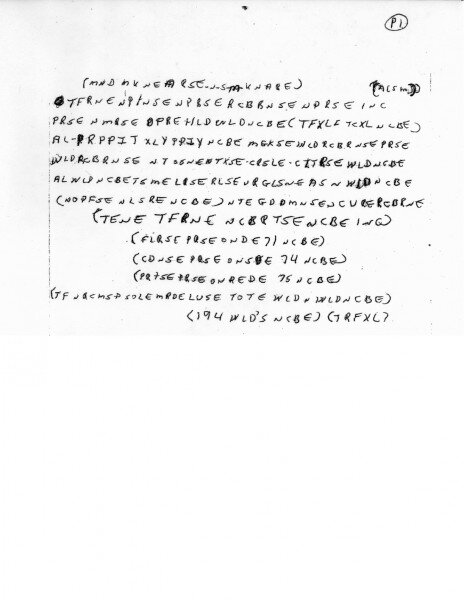 P1
(MND MKNEARSE-N-S-M-KNARE) (ALSM)
TFRNENPINSENPBSERCBBNSENPRSEINC
PRSENMRSEOPREHLDWLDNCBE(TFXLFTCXLNCBE)
AL-PRPPITXLYPPIYNCBEMGKSEWLDRCBRNSEPRSE
WLDRCBRNSENTOSNENTXSE-CRSLE-CITRSEWLDNCBE
ALWLDNCBETSMELRSERLSEURGLSNEASNWLDNCBE
(NOPFSENLSRENCBE)NTEGDDMNSENCURERCBRNE
(TENE TFRNE NCBRTSENCBEING)
(FLRSEPRSEONDE71NCBE)
(CDNSEPRSEONSDE74NCBE)
(PRTSEPRSEONREDE75NCBE)
(TFNRCMSPSOLEMRDELUSETOTEWLDNWLDNCBE)
(194WLD'SNCBE)(TRFXL)